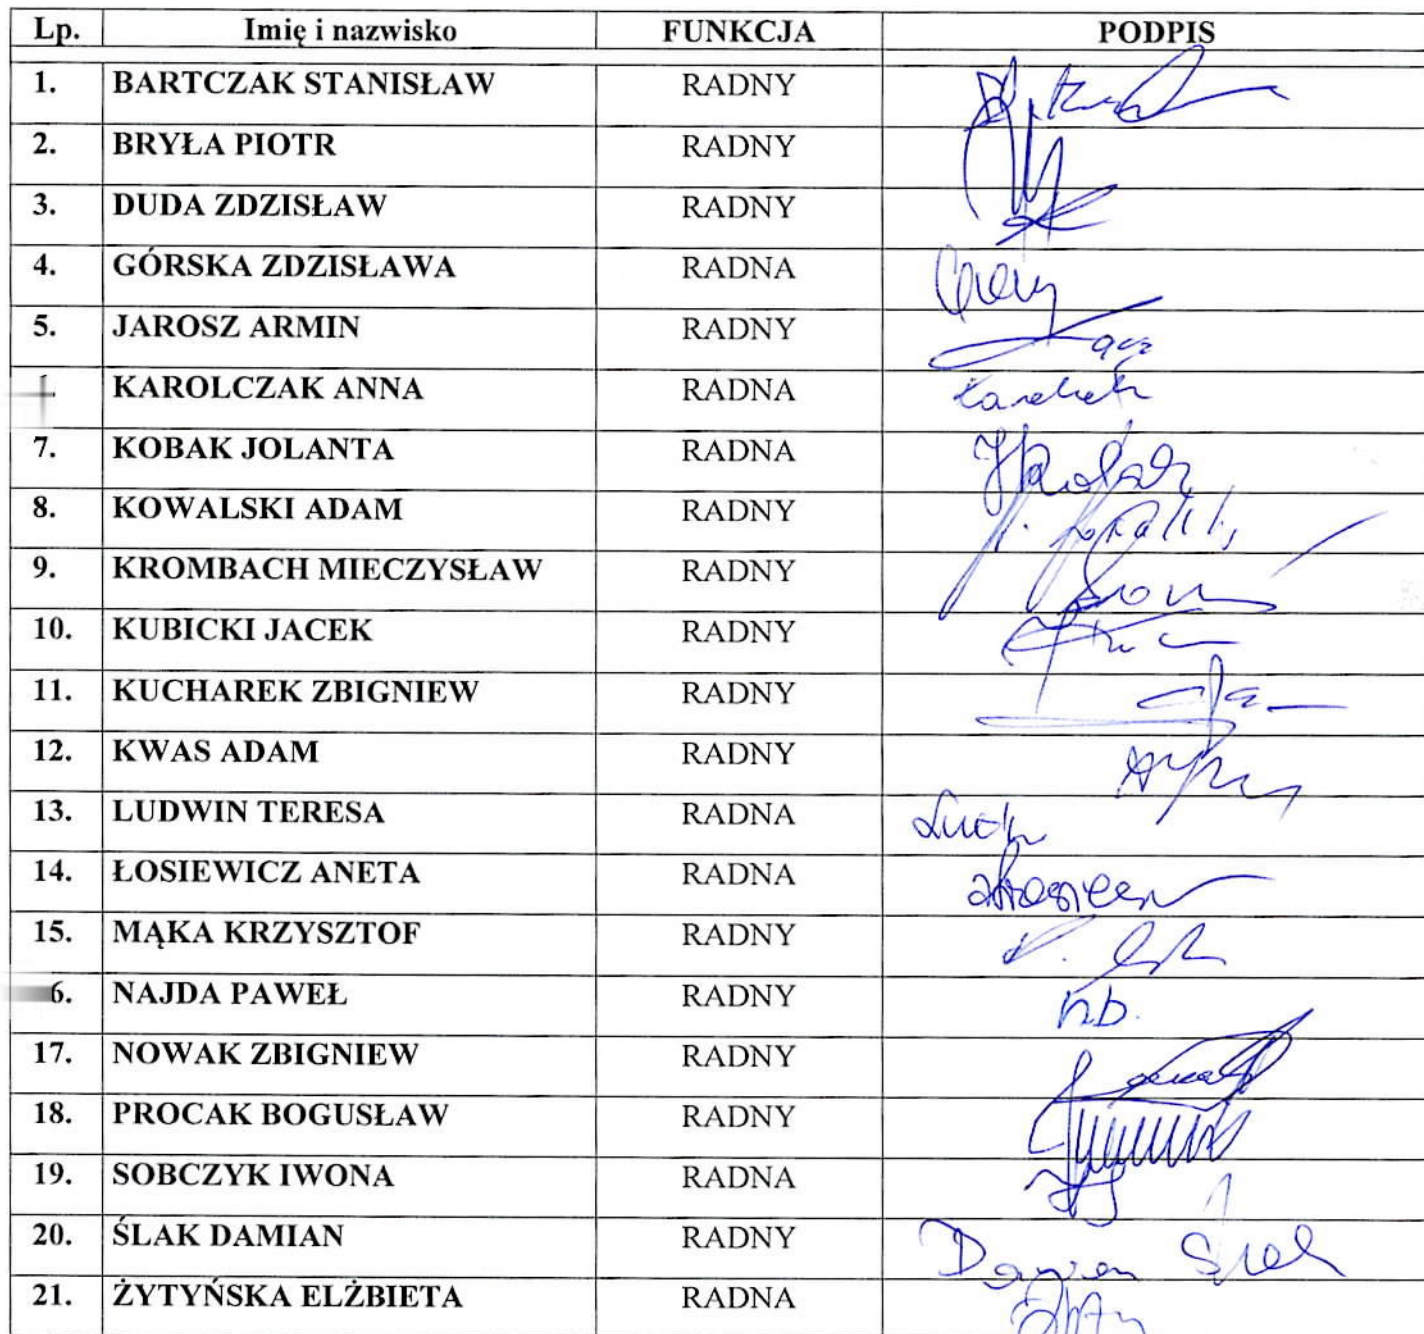 Lp. Imię i nazwisko FUNKCJA PODPIS
1. BARTCZAK STANISŁAW RADNY
2. BRYŁA PIOTR RADNY
3. DUDA ZDZISŁAW RADNY
4. GÓRSKA ZDZISŁAWA RADNA
5. JAROSZ ARMIN RADNY
KAROLCZAK ANNA RADNA
7. KOBAK JOLANTA RADNA
8. KOWALSKI ADAM RADNY
9. KROMBACH MIECZYSŁAW RADNY
10. KUBICKI JACEK RADNY
11. KUCHAREK ZBIGNIEW RADNY
12. KWAS ADAM RADNY
13. LUDWIN TERESA RADNA
14. ŁOSIEWICZ ANETA RADNA
15. MĄKA KRZYSZTOF RADNY
6. NAJDA PAWEŁ RADNY nb.
17. NOWAK ZBIGNIEW RADNY
18. PROCAK BOGUSŁAW RADNY
19. SOBCZYK IWONA RADNA
20. ŚLAK DAMIAN RADNY Damian Ślak
21. ŻYTYŃSKA ELŻBIETA RADNA